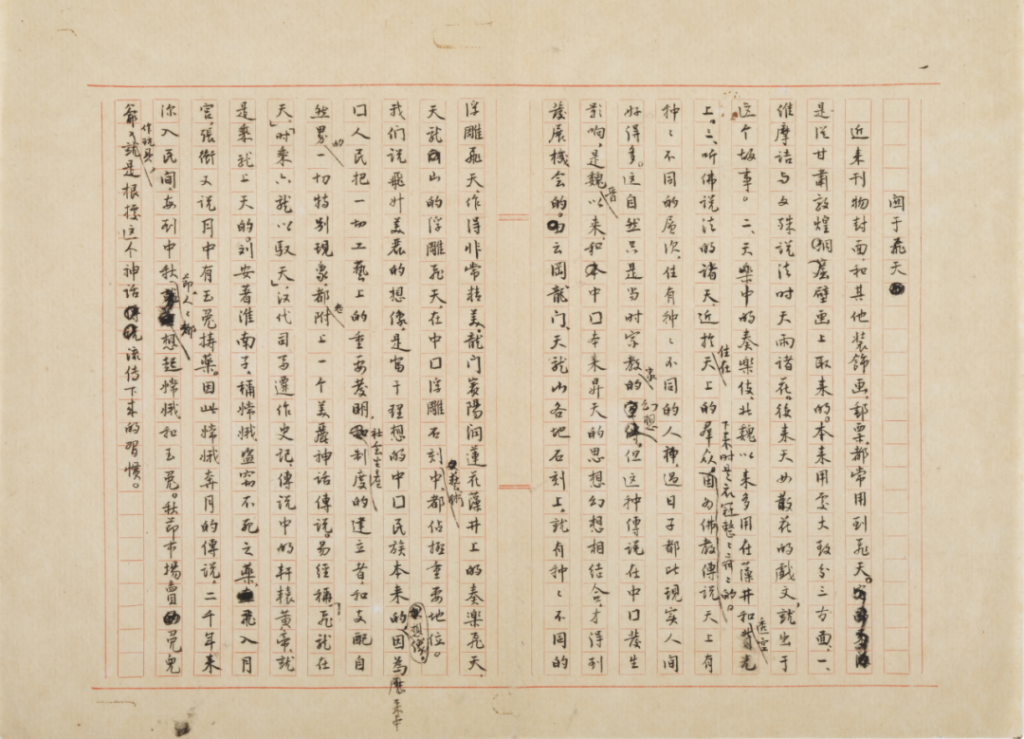 关于飞天
近来刊物封面,和其他装饰画,邮票,都常用到飞天。
是从甘肃敦煌洞窟壁画上取来的。本来用处大致分三方面,一、
维摩诘与文殊说法时天雨诸花。后来天女散花的戏文,就出于
这个故事。二、天乐中的奏乐伎,北魏以来多用在藻井和背光透空
上。三、听佛说法的诸天,近于住在天上的群众,下来时是衣冠整整齐齐的。因为佛教传说天上有
种种不同的层次,住有种种不同的人神,过日子都比现实人间
好得多。这自然只是当时宗教家的幻想。但这种传说在中囗发生
影响,是魏晋以来,和本中囗本来昇天的思想幻想相结合,才得到
发展机会的。云冈龙门,天龙山各地石刻上,就有种种不同的
浮雕飞天作得非常精美。龙门宾阳洞莲花藻井上的奏乐飞天,
天龙山的浮雕飞天在中囗浮雕石刻艺术中,都占极重要地位。
我们说飞升美丽的想像,是富于理想的中囗民族本来的想像。因为历来
囗人民把一切工艺上的重要发明,社会生产制度的建立者,和支配自
然界的一切特别现象,都附上一个美丽神话传说。易经称“飞龙在
天”,“时乘六龙以驭天”,汉代司马迁作史记,传说中的轩辕黄帝,就
是乘龙上天的。刘安著淮南子,称嫦娥盗窃不死之药,飞入月
宫。张衡又说月中有玉兔捣药。因此嫦娥奔月的传说,二千年来
深入民间,每到中秋节,人人都想起嫦娥和玉兔。秋节市场卖兔儿
爷作玩具,就是根据这个神话流传下来的习惯。